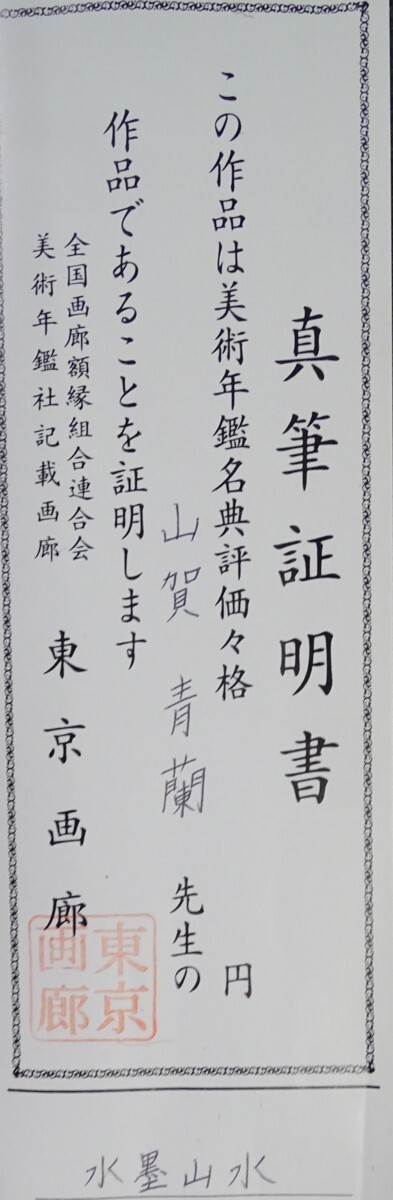 真筆証明書
この作品は美術年鑑名典評価々格
円
山賀青蘭 先生の
作品であることを証明します
全国画廊額縁組合連合会
美術年鑑社記載画廊
東京画廊
東京
画廊
水墨山水